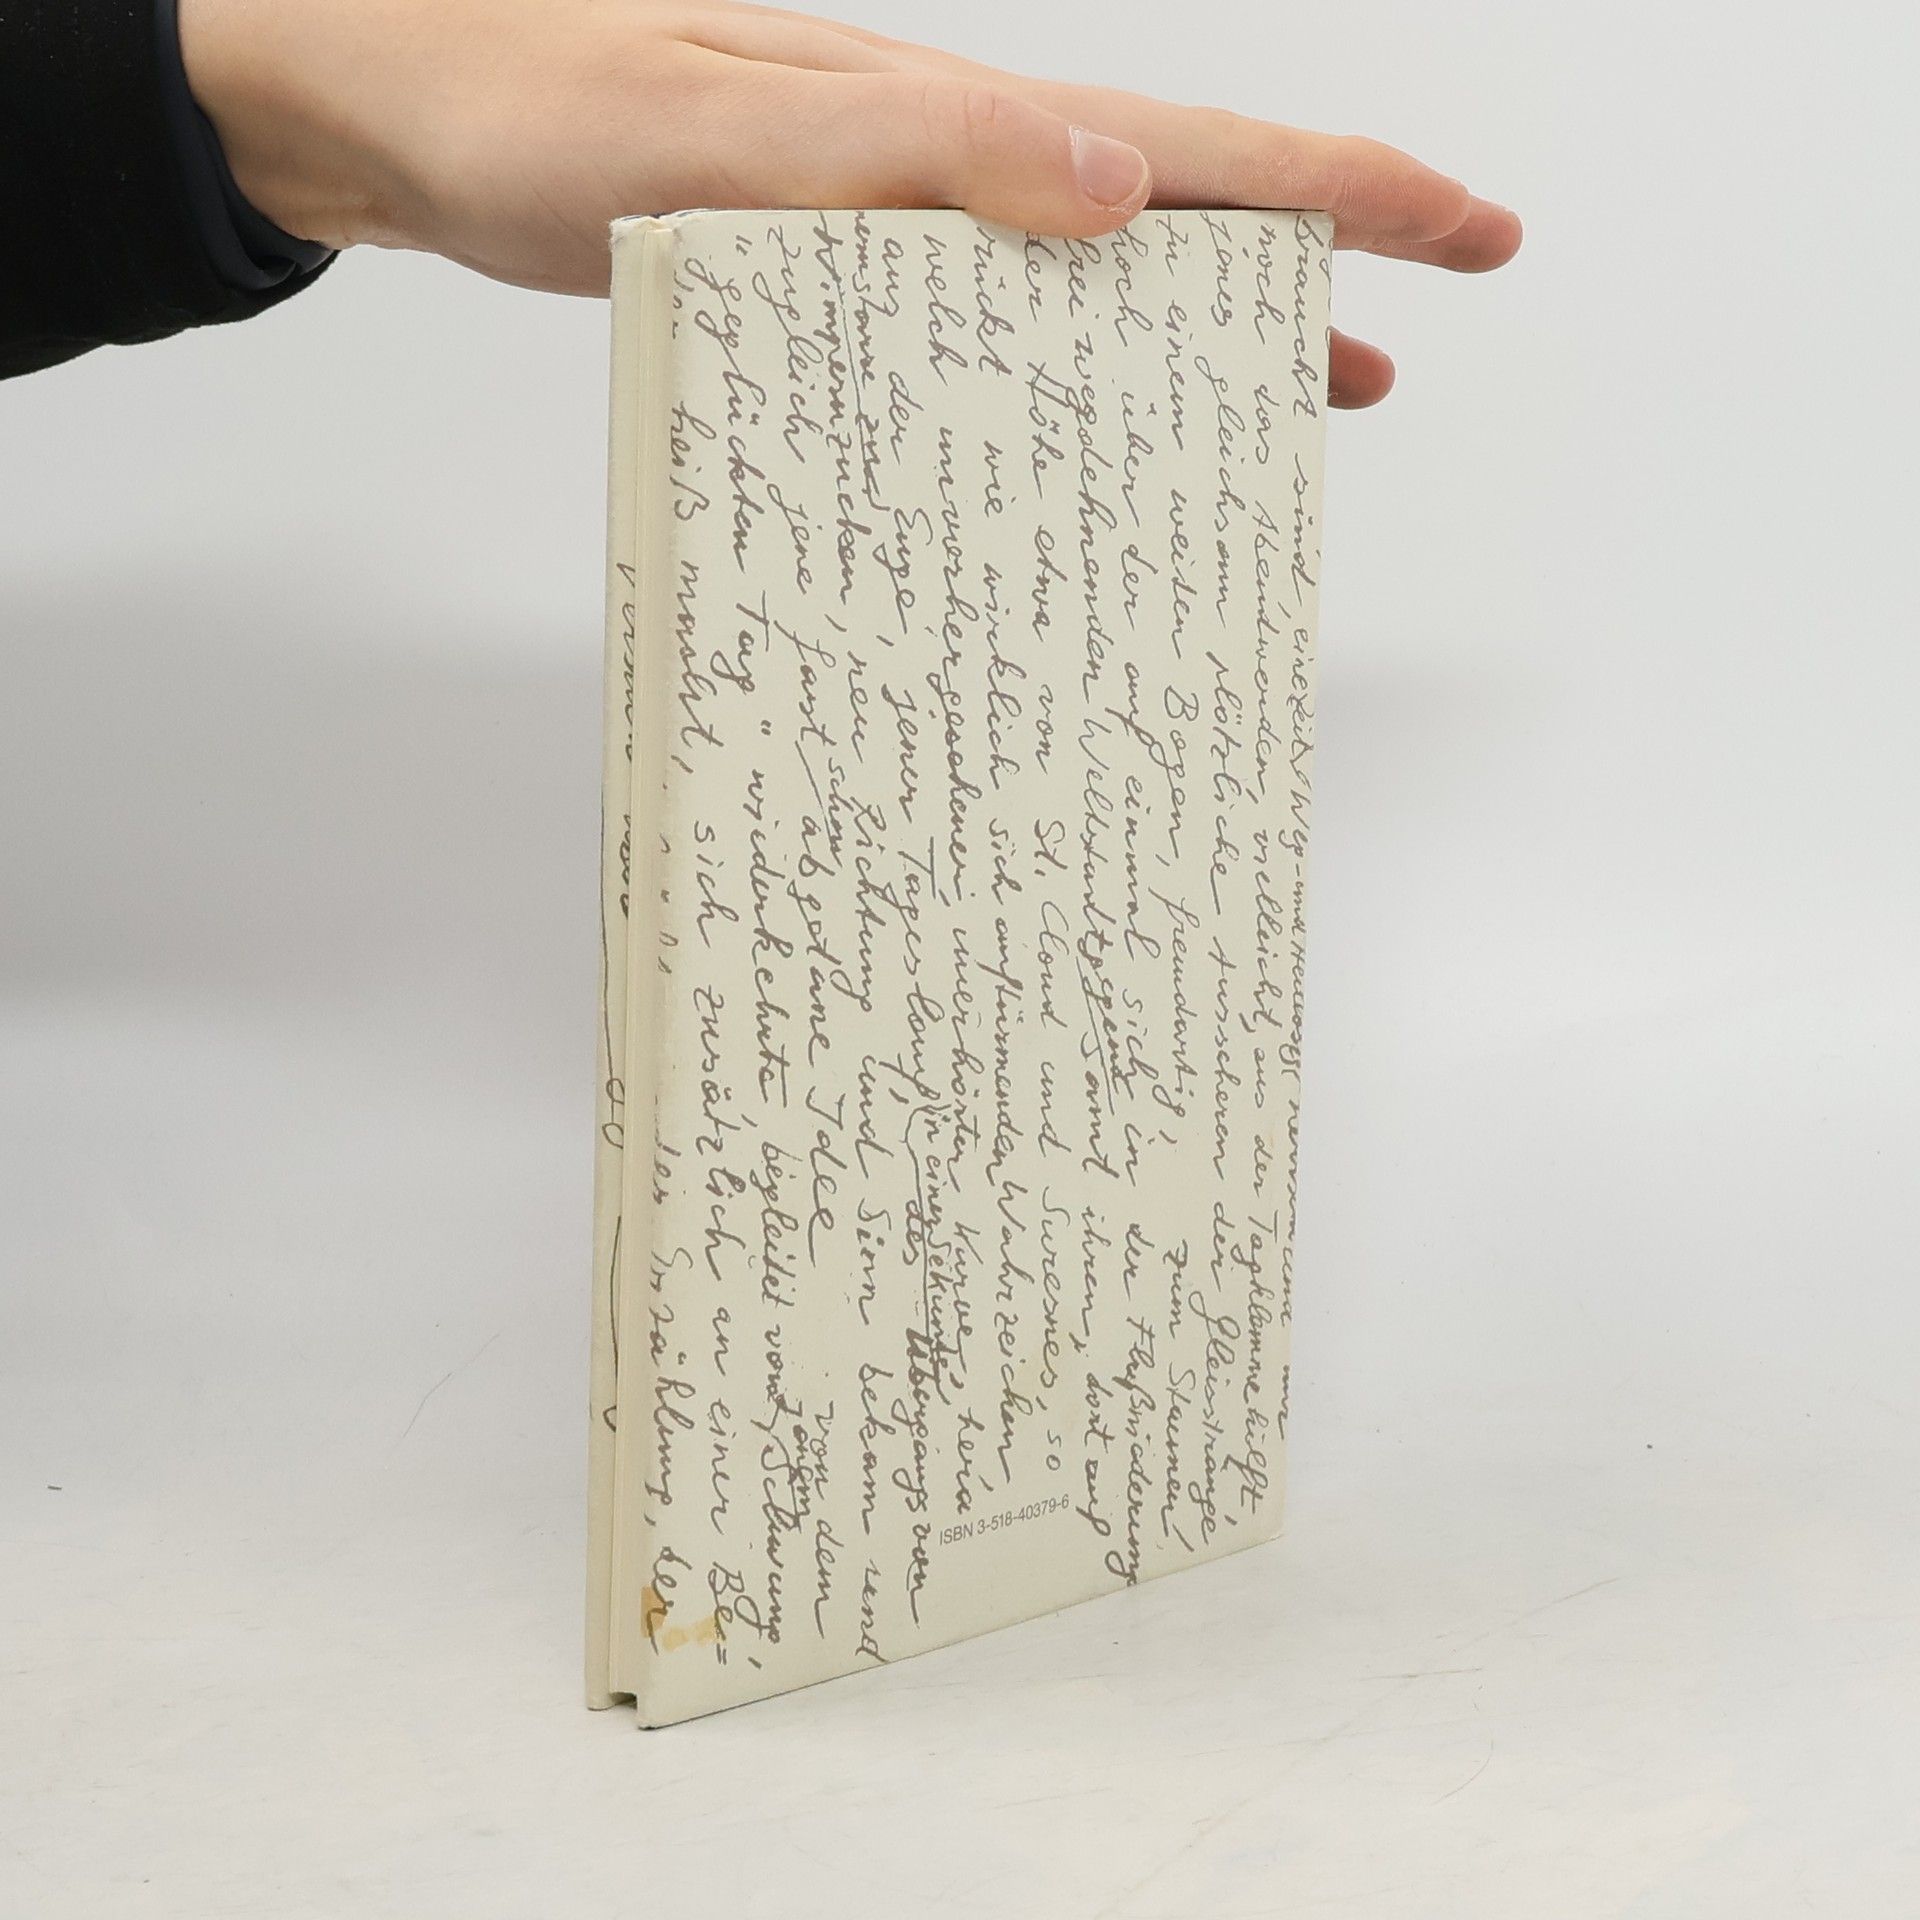 braucht sind, eine Zeit, Weg- und
noch das Abendwerden, vielleicht, aus der Tagklemme hilft,
jenes gleichsam plötzliche Ausscheren der Gleisstränge
zu einem weiten Bogen, fremdartig, zum Staunen,
hoch über der auf einmal sich in der Flußniederung
frei wegdehnenden Weltstadtgegend samt ihren, dort auf
der Höhe etwa von St. Cloud und Suresnes, so
rückt wie wirklich sich auftürmenden Wahrzeichen
welch unvorhergesehener, unerhörter Kurve, hera
aus der Enge, jener Tageslauf, in einer Sekunde, des Übergangs von
Wimpernzucken, neu Richtung und Sinn bekam und
zugleich jene fast schon abgetane Idee von dem
"geglückten Tag" wiederkehrte, begleitet von jenem Schwung,
heiß macht, sich zusätzlich an einer Be=
der Erzählung, der
ISBN 3-518-40379-6